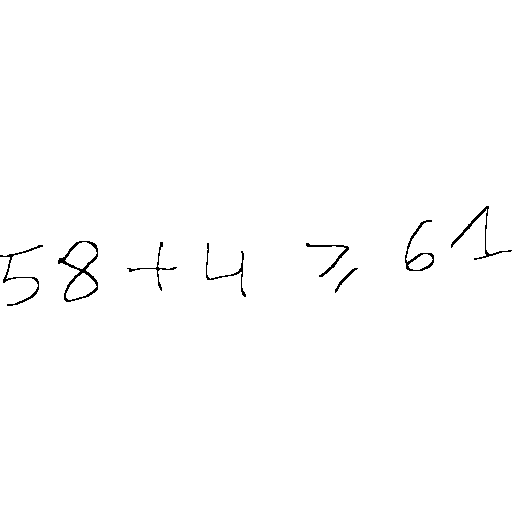 58 + 4 ⩾ 61